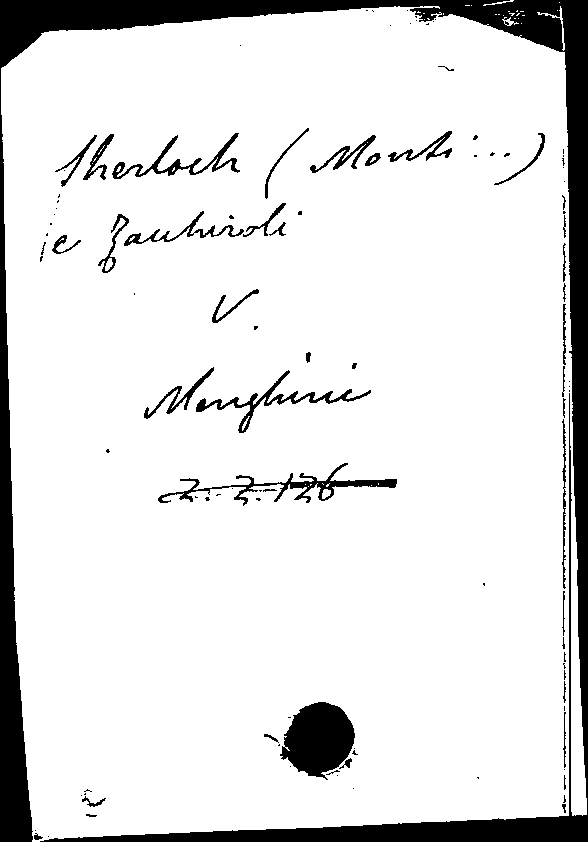 Sherloch (Monti...)
e Zauhiroli
V.
Menghini
Z. Z. 126